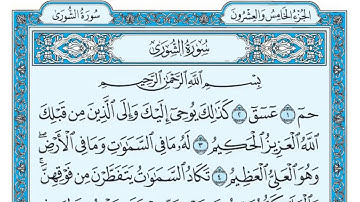 سُورَةُ الشُّورَىٰ الجُزْءُ الخَامِسُ وَالعِشْرُونَ
سُورَةُ الشُّورَىٰ
بِسْمِ اللَّهِ الرَّحْمَٰنِ الرَّحِيمِ
حمٓ ١ عٓسٓقٓ ٢ كَذَٰلِكَ يُوحِىٓ إِلَيْكَ وَإِلَى ٱلَّذِينَ مِن قَبْلِكَ
ٱللَّهُ ٱلْعَزِيزُ ٱلْحَكِيمُ ٣ لَهُۥ مَا فِى ٱلسَّمَٰوَٰتِ وَمَا فِى ٱلْأَرْضِ ۖ
وَهُوَ ٱلْعَلِىُّ ٱلْعَظِيمُ ٤ تَكَادُ ٱلسَّمَٰوَٰتُ يَتَفَطَّرْنَ مِن فَوْقِهِنَّ ۚ